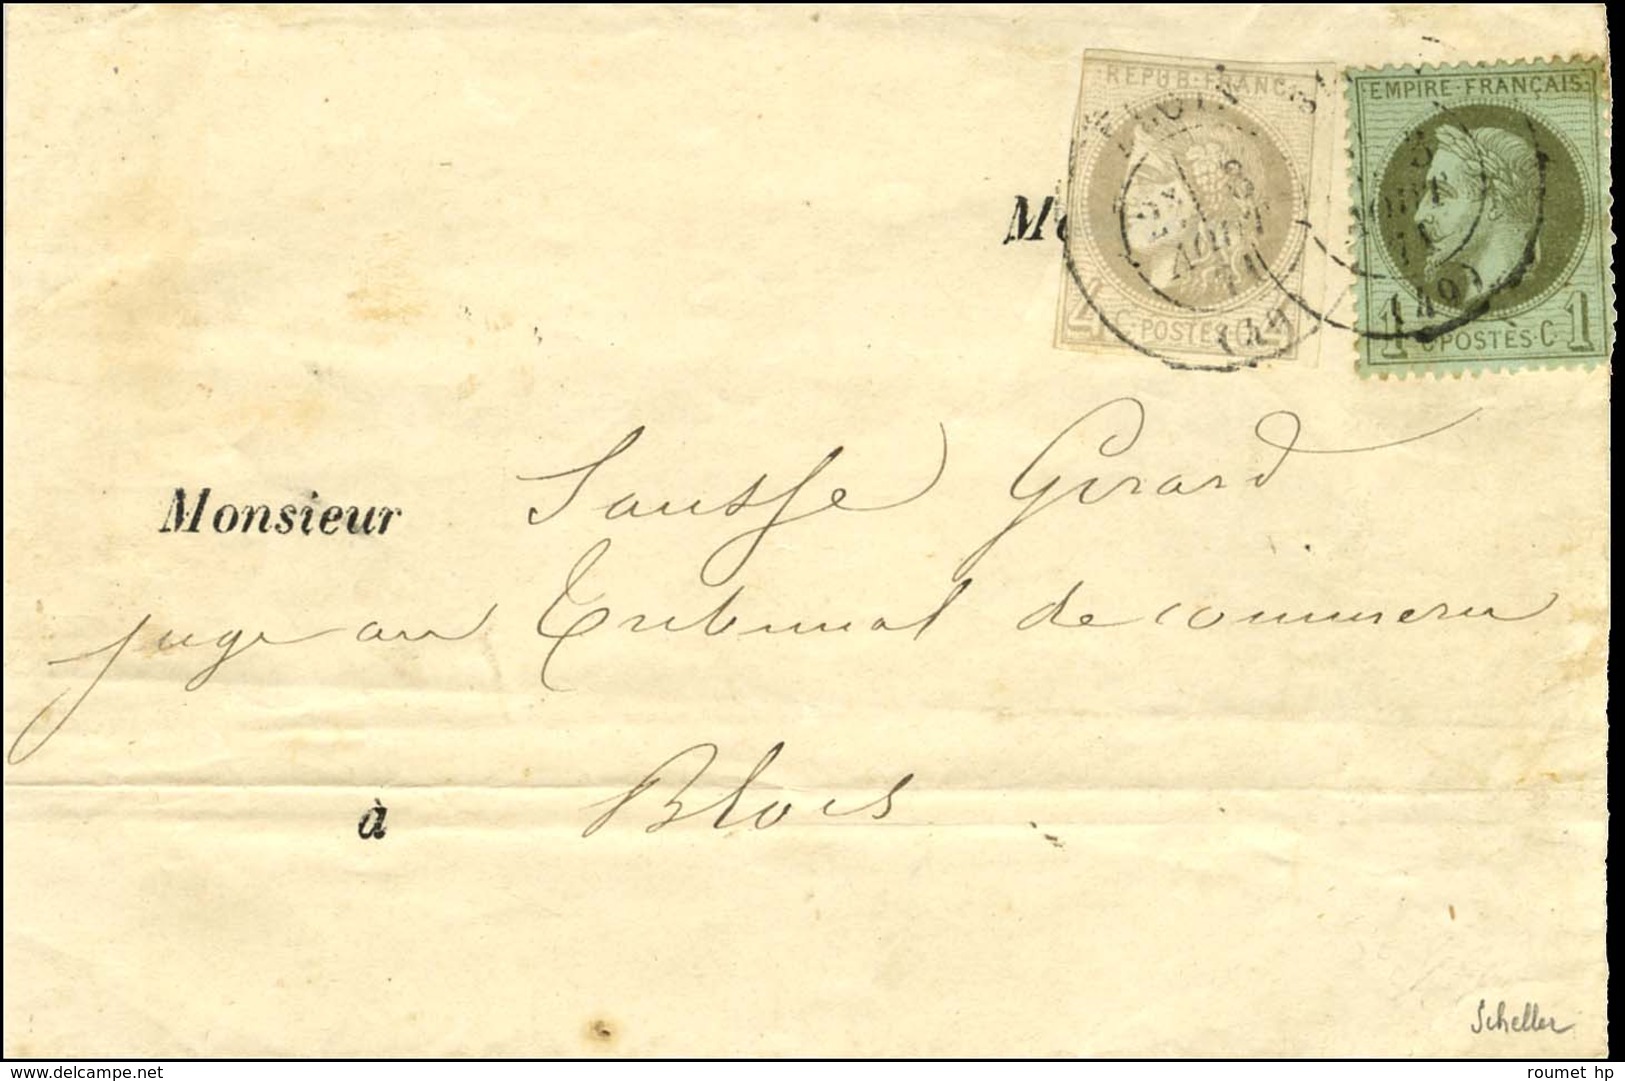 REPUB·FRANC
4 C·POSTES·C
EMPIRE·FRANÇAIS
1 C·POSTES·C·1
BLOIS
AOUT
71
(40)
AOUT
71
(40)
Monsieur Sausse Girard
juge au Tribunal de commerce
à Blois
Scheller
www.delcampe.net
roumet hp